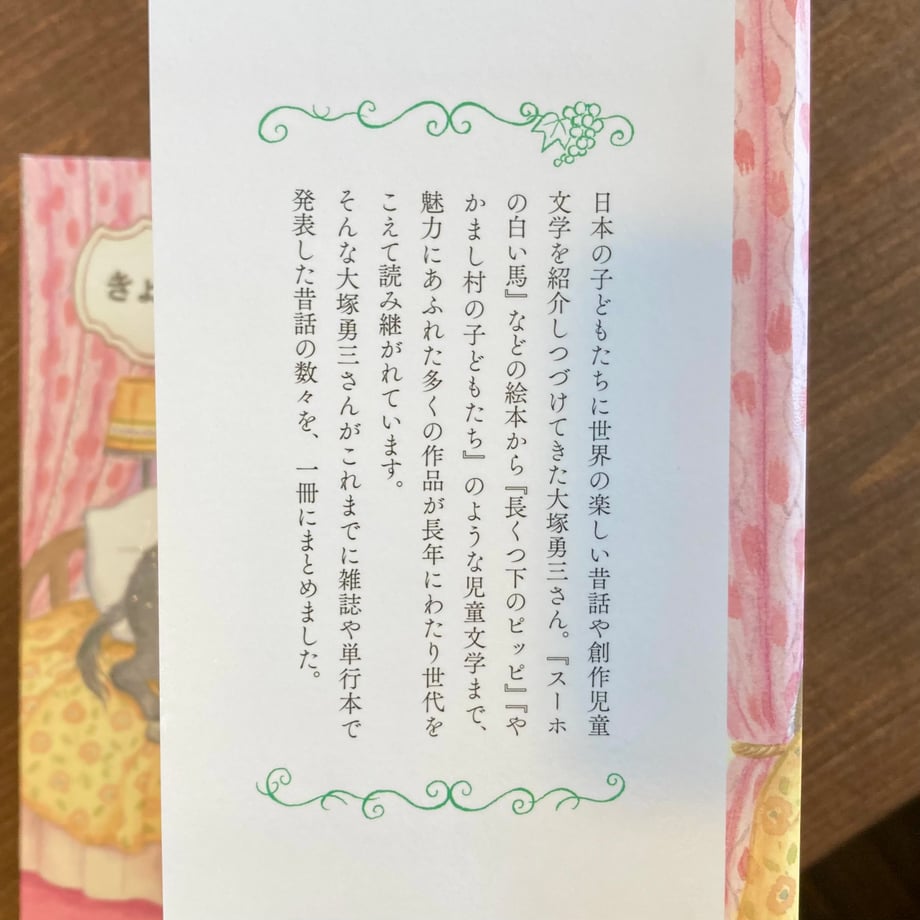 日本の子どもたちに世界の楽しい昔話や創作児童
文学を紹介しつづけてきた大塚勇三さん。『スーホ
の白い馬』などの絵本から『長くつ下のピッピ』『や
かまし村の子どもたち』のような児童文学まで、
魅力にあふれた多くの作品が長年にわたり世代を
こえて読み継がれています。
そんな大塚勇三さんがこれまでに雑誌や単行本で
発表した昔話の数々を、一冊にまとめました。
きょ